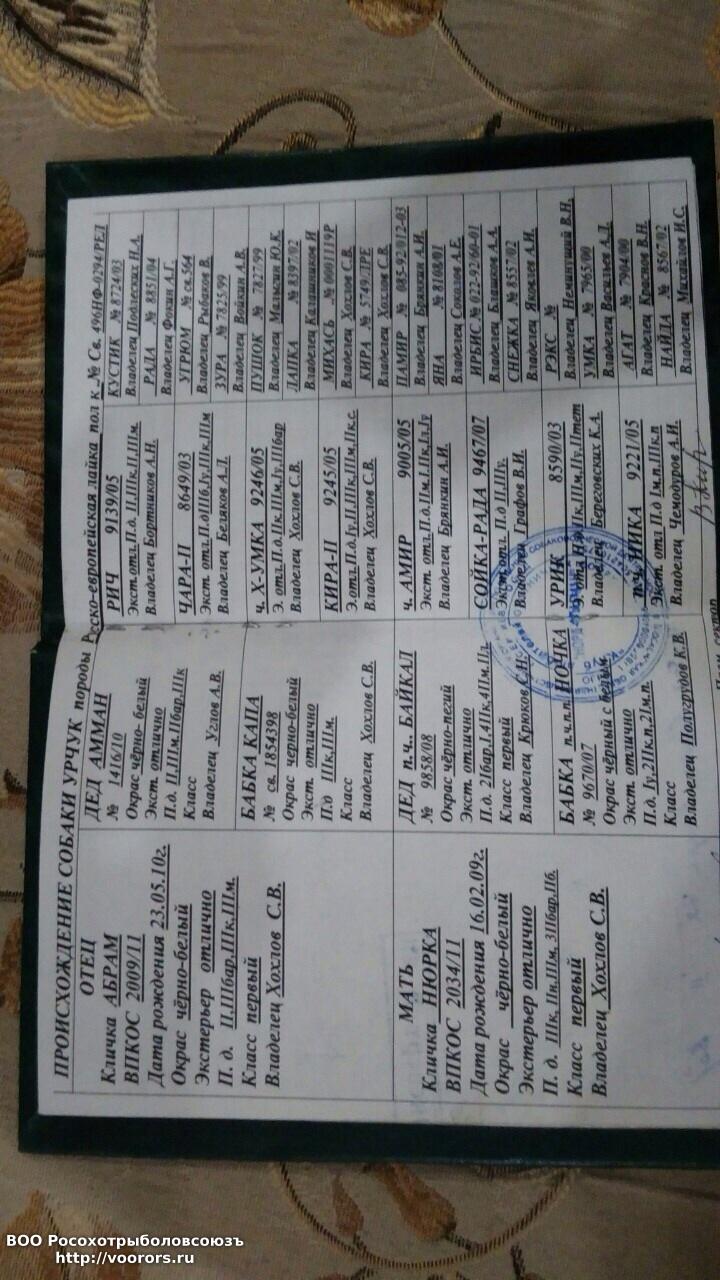 ПРОИСХОЖДЕНИЕ СОБАКИ УРЧУК породы Русско-европейская лайка пол к № Св. 496НФ-0294/РЕЛ
ОТЕЦ
Кличка АБРАМ
ВПКОС 2009/11
Дата рождения 23.05.10г.
Окрас чёрно-белый
Экстерьер отлично
П. д. II,IIIбар,IIIк,IIIм.
Класс первый
Владелец Хохлов С.В.
МАТЬ
Кличка НЮРКА
ВПКОС 2034/11
Дата рождения 16.02.09г.
Окрас чёрно-белый
Экстерьер отлично
П. д. IIIк,IIп,IIIм,3IIбар,IIб.
Класс первый
Владелец Хохлов С.В.
ДЕД АММАН
№ 1416/10
Окрас чёрно- белый
Экст. отлично
П.д. II,IIIм,IIбар,IIIк
Класс
Владелец Углов А.В.
БАБКА КАПА
№ св. 1854398
Окрас черно-белый
Экст. отлично
П.д IIIк,IIIм.
Класс
Владелец Хохлов С.В.
ДЕД п.ч.. БАЙКАЛ
№ 9858/08
Окрас чёрно-пегий
Экст. отлично
П.д. 2Iбар,I,4IIк,4IIм,IIл
Класс первый
Владелец Крюков С.Н.
БАБКА п.ч.п.п. НОЧКА
№ 9670/07
Окрас чёрный с белым
Экст. отлично
П.д. Iу,2IIк,п,2Iм,п.
Класс
Владелец Полугрудов К.В.
РИЧ 9139/05
Экст. отл.П.д. II,IIIк,II,IIIм.
Владелец Бортников А.Н.
ЧАРА-П 8649/03
Экст. отл.П.дIIIб,Iу,IIIк,IIIм
Владелец Беляков А.Л.
ч. Х-УМКА 9246/05
Э. отл.П.дIIк,IIIм,Iу,IIIбар
Владелец Хохлов С.В.
КИРА-П 9245/05
Э.отл.П.д.Iу,II,IIIк,IIIм,IIк,с.
Владелец Хохлов С.В.
ч. АМИР 9005/05
Экст. отл.П.д,IIм,I,IIк,Iл,Iу
Владелец Брянкин А.И.
СОЙКА-РАДА 9467/07
Экст. отл. П.д II,IIIу.
Владелец Графов В.И.
УРИК 8590/03
Владелец Береговских К.А.
п.ч. НИКА 9221/05
Экст. отл П.д Iм,п,IIIк,п
Владелец Чемодуров А.И.
КУСТИК № 8724/03
Владелец Подлесных Н.А.
РАДА № 8851/04
Владелец Фокин А.Г.
УГРЮМ № св.564
Владелец Рыбаков В.
ЗУРА № 7825/99
Владелец Войкин А.В.
ПУШОК № 7827/99
Владелец Малыгин Ю.К.
ЛАПКА № 8397/02
Владелец Калашников И
МИХАСЬ № 0001119Р
Владелец Хохлов С.В.
КИРА № 5749/ЛРЕ
Владелец Хохлов С.В.
ПАМИР № 085-92/012-03
Владелец Брянкин А.И.
ЯНА № 8108/01
Владелец Соколов А.Е.
ИРБИС № 022-92/60-01
Владелец Блашков А.А.
СНЕЖКА № 8557/02
Владелец Яковлев А.И.
РЭКС №
Владелец Неминущий В.Н.
УМКА № 7965/00
Владелец Васильев А.Д.
АГАТ № 7904/00
Владелец Краснов В.Н.
НАЙДА № 8567/02
Владелец Михайлов И.С.
ВОО Росохотрыболовсоюзъ
http://voorors.ru